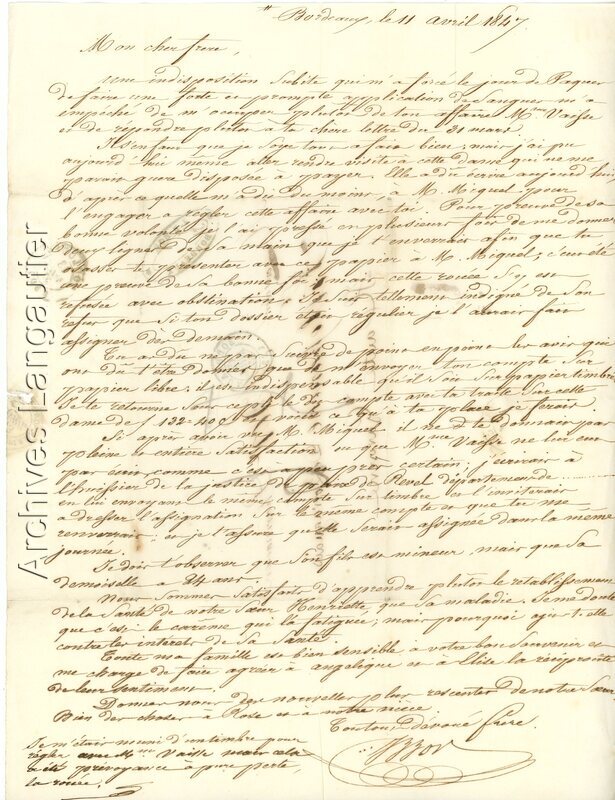 Bordeaux, le 11 avril 1847
Mon cher frere,
Une indisposition Subite qui m'a forcé le jour de Paques
de faire une forte et prompte application de Sangsues m'a
empêché de m'occuper plutôt de ton affaire Mme Vaisse
et de répondre plutôt a ta chere lettre du 21 mars.
Il s'en faut que je Soye tout a fait bien; mais j'ai pu
aujourd'hui même aller rendre visite à cette dame qui ne me
parait guere disposée à payer. Elle a dû écrire aujourd'hui,
d'après ce qu'elle m'a dit du moins à M. Miquel pour
l'engager a régler cette affaire avec toi. Pour preuve de sa
bonne volonté je l'ai pressé en plusieurs fois de me donner
deux lignes de Sa main que je t'enverrais afin que tu
te présenter avec ce papier à M. Miquel; c'eut été
une preuve de Sa bonne foi, mais cette rouée S'y est
refusée avec obstination; Je Suis tellement indigné de Son
refus que Si ton dossier etait régulier je l'aurais fait
assigner dès demain.
Tu as dû n'pas Suivre de point en point les avis que
ont dû t'être donnés que de m'envoyer ton compte Sur
papier libre; il est indispensable qu'il Soit Sur papier timbré
Je te retourne Sous ce pli le dit compte avec ta traite Sur cette
dame de f. 122=40 et voici ce qu'à ta place je ferais.
Si après avoir vu M. Miquel il ne te donnait pas
pleine et entière Satisfaction vu que Mme Vaisse ne lui eut
pas écrit comme c'est a peu près certain; j'ecrirais à
l'huissier de la justice de paix de Revel département de
en lui envoyant le même compte Sur timbre et l'inviterais
a dresser l'assignation Sur le même compte et que tu me
renverrais: et je t'assure qu'elle Serait assignée dans la même
journée.
Je dois t'observer que Son fils est mineur, mais que Sa
demoiselle a 24 ans.
Nous Sommes Satisfaits d'apprendre plutôt le retablissement
de la Santé de notre Sœur Henriette, que Sa maladie. Je me doute
que c'est le carême qui l'a fatiguée; mais pourquoi agit-elle
contre les intérêts de Sa Santé.
Toute ma famille est bien sensible à votre bon Souvenir et
me charge de faire agréer à angelique et a Elise la réciprocité
de leurs Sentimens.
Donnes nous des nouvelles plus rescentes de notre Sœur
Bien des choses a Rose et a notre niece
Ton tout dévoué frere.
Je m'étais muni d'un timbre pour
régler avec Mme Vaisse mais cela
a été prévoyance à pure perte,
la rouée.
Archives Langautier